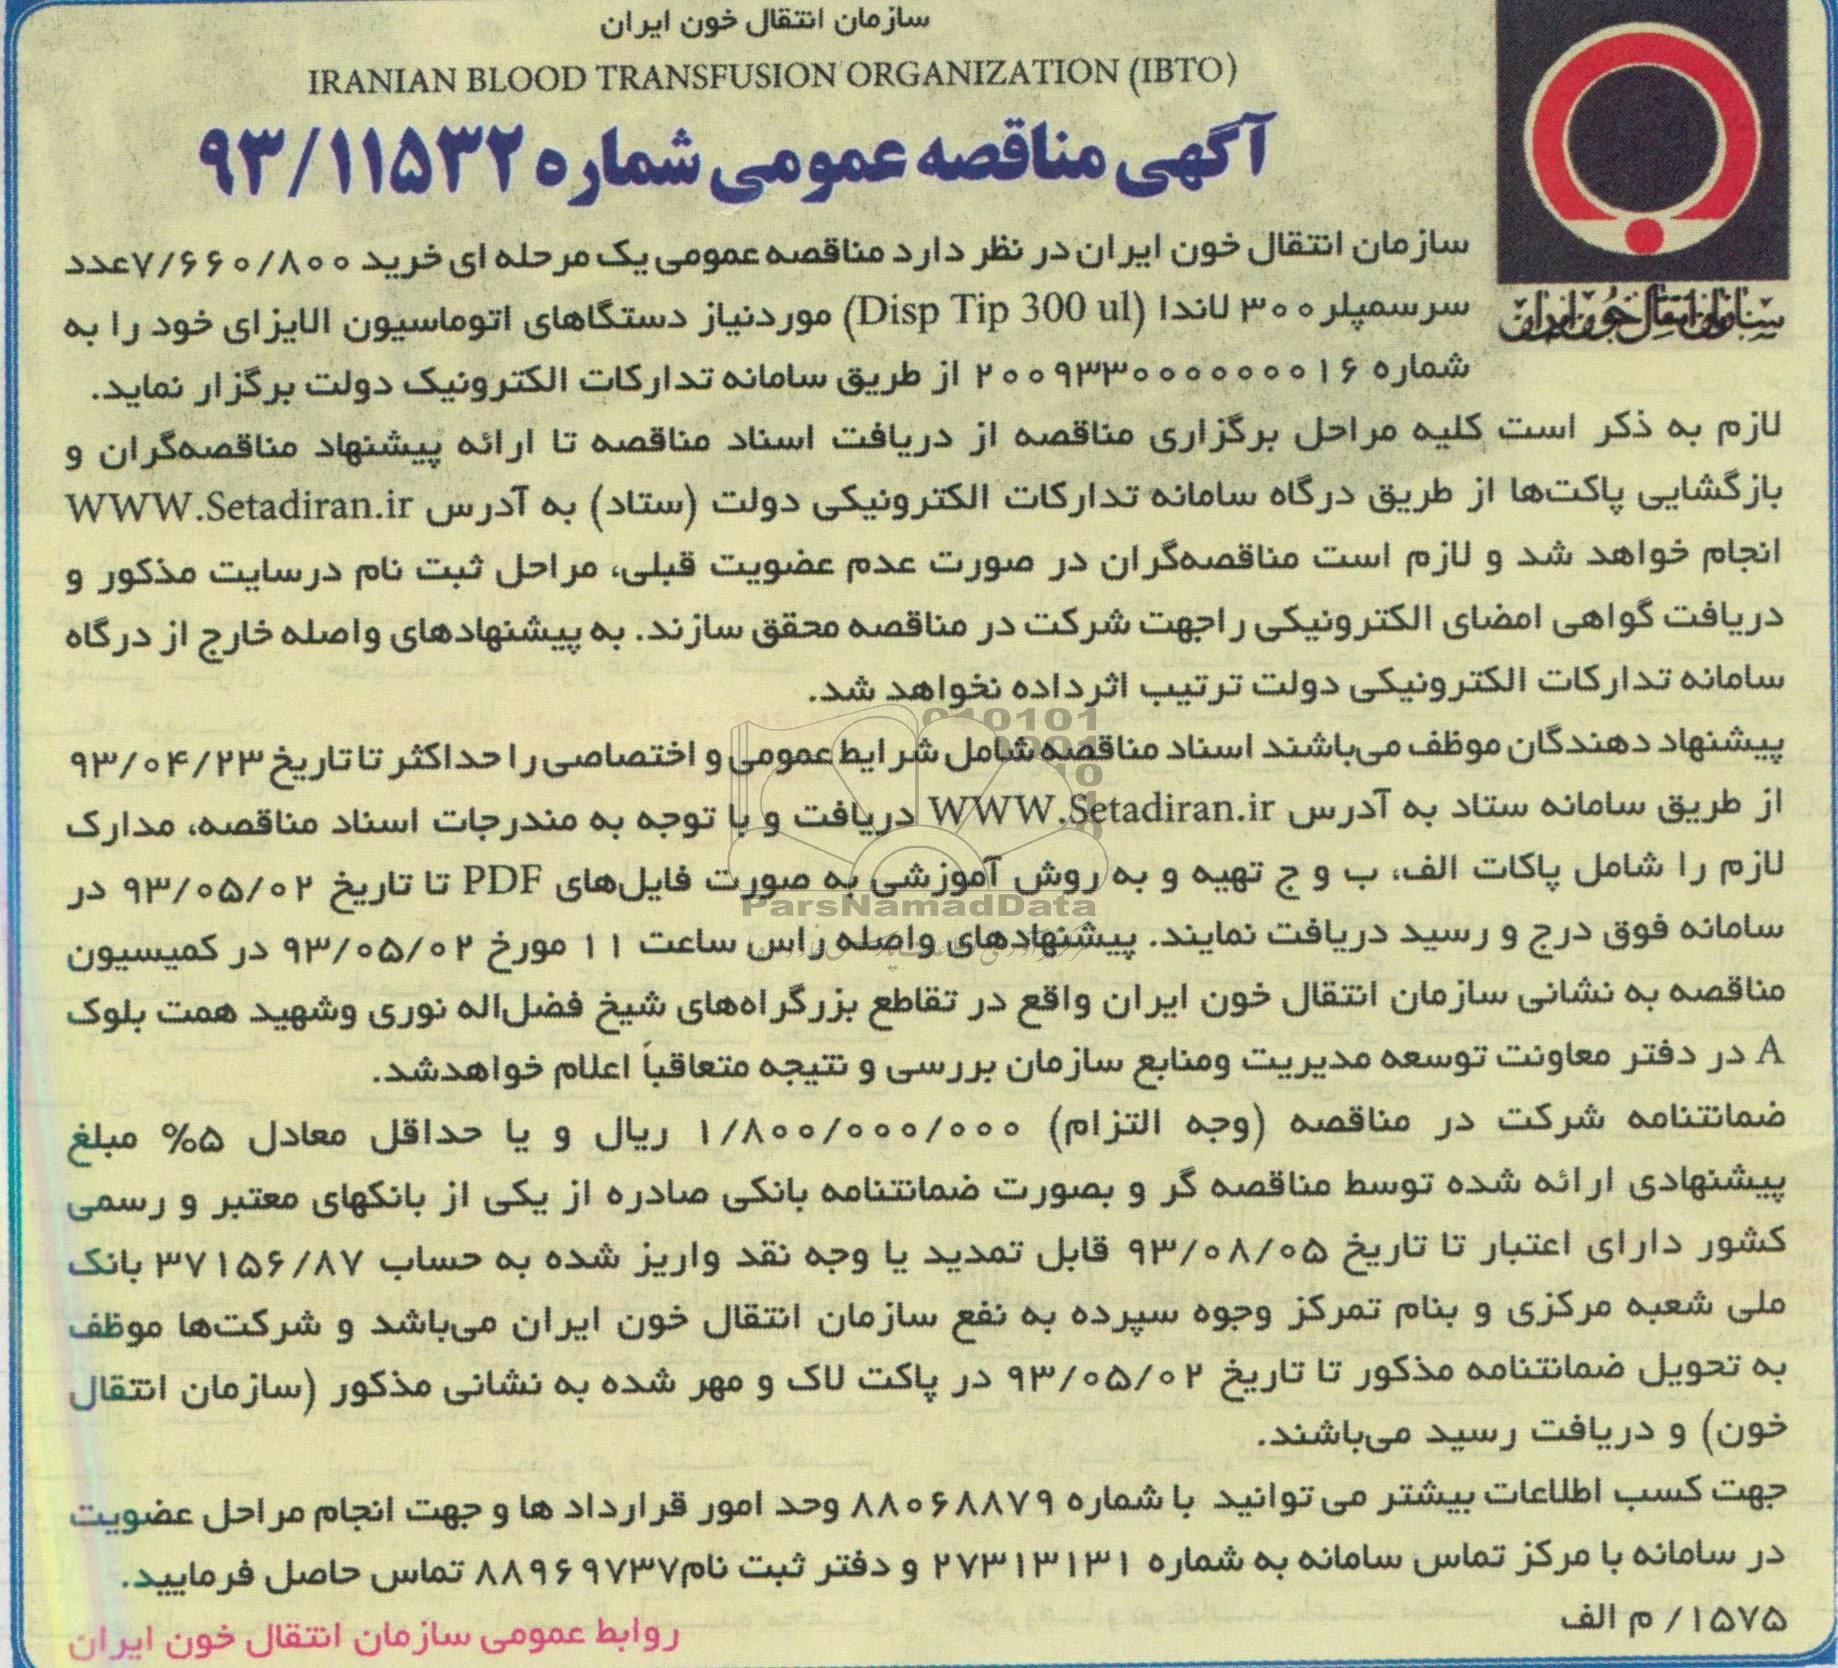 سازمان انتقال خون ایران
IRANIAN BLOOD TRANSFUSION ORGANIZATION (IBTO)
آگهی مناقصه عمومی شماره ۹۳/۱۱۵۳۲
سازمان انتقال خون ایران
سازمان انتقال خون ایران در نظر دارد مناقصه عمومی یک مرحله ای خرید ۷/۶۶۰/۸۰۰ عدد
سرسمپلر ۳۰۰ لاندا (Disp Tip 300 ul) موردنیاز دستگاهای اتوماسیون الایزای خود را به
شماره ۲۰۰۹۳۳۰۰۰۰۰۰۰۰۱۶ از طریق سامانه تدارکات الکترونیک دولت برگزار نماید.
لازم به ذکر است کلیه مراحل برگزاری مناقصه از دریافت اسناد مناقصه تا ارائه پیشنهاد مناقصه‌گران و
بازگشایی پاکت‌ها از طریق درگاه سامانه تدارکات الکترونیکی دولت (ستاد) به آدرس WWW.Setadiran.ir
انجام خواهد شد و لازم است مناقصه‌گران در صورت عدم عضویت قبلی، مراحل ثبت نام درسایت مذکور و
دریافت گواهی امضای الکترونیکی راجهت شرکت در مناقصه محقق سازند. به پیشنهادهای واصله خارج از درگاه
سامانه تدارکات الکترونیکی دولت ترتیب اثرداده نخواهد شد.
پیشنهاد دهندگان موظف می‌باشند اسناد مناقصه شامل شرایط عمومی و اختصاصی را حداکثر تا تاریخ ۹۳/۰۴/۲۳
از طریق سامانه ستاد به آدرس WWW.Setadiran.ir دریافت و با توجه به مندرجات اسناد مناقصه، مدارک
لازم را شامل پاکات الف، ب و ج تهیه و به روش آموزشی به صورت فایل‌های PDF تا تاریخ ۹۳/۰۵/۰۲ در
سامانه فوق درج و رسید دریافت نمایند. پیشنهادهای واصله راس ساعت ۱۱ مورخ ۹۳/۰۵/۰۲ در کمیسیون
مناقصه به نشانی سازمان انتقال خون ایران واقع در تقاطع بزرگراه‌های شیخ فضل‌اله نوری وشهید همت بلوک
A در دفتر معاونت توسعه مدیریت ومنابع سازمان بررسی و نتیجه متعاقباً اعلام خواهدشد.
ضمانتنامه شرکت در مناقصه (وجه التزام) ۱/۸۰۰/۰۰۰/۰۰۰ ریال و یا حداقل معادل ۵% مبلغ
پیشنهادی ارائه شده توسط مناقصه گر و بصورت ضمانتنامه بانکی صادره از یکی از بانکهای معتبر و رسمی
کشور دارای اعتبار تا تاریخ ۹۳/۰۸/۰۵ قابل تمدید یا وجه نقد واریز شده به حساب ۳۷۱۵۶/۸۷ بانک
ملی شعبه مرکزی و بنام تمرکز وجوه سپرده به نفع سازمان انتقال خون ایران می‌باشد و شرکت‌ها موظف
به تحویل ضمانتنامه مذکور تا تاریخ ۹۳/۰۵/۰۲ در پاکت لاک و مهر شده به نشانی مذکور (سازمان انتقال
خون) و دریافت رسید می‌باشند.
جهت کسب اطلاعات بیشتر می توانید با شماره ۸۸۰۶۸۸۷۹ وحد امور قرارداد ها و جهت انجام مراحل عضویت
در سامانه با مرکز تماس سامانه به شماره ۲۷۳۱۳۱۳۱ و دفتر ثبت نام۸۸۹۶۹۷۳۷ تماس حاصل فرمایید.
۱۵۷۵/ م الف
روابط عمومی سازمان انتقال خون ایران
ParsNamadData